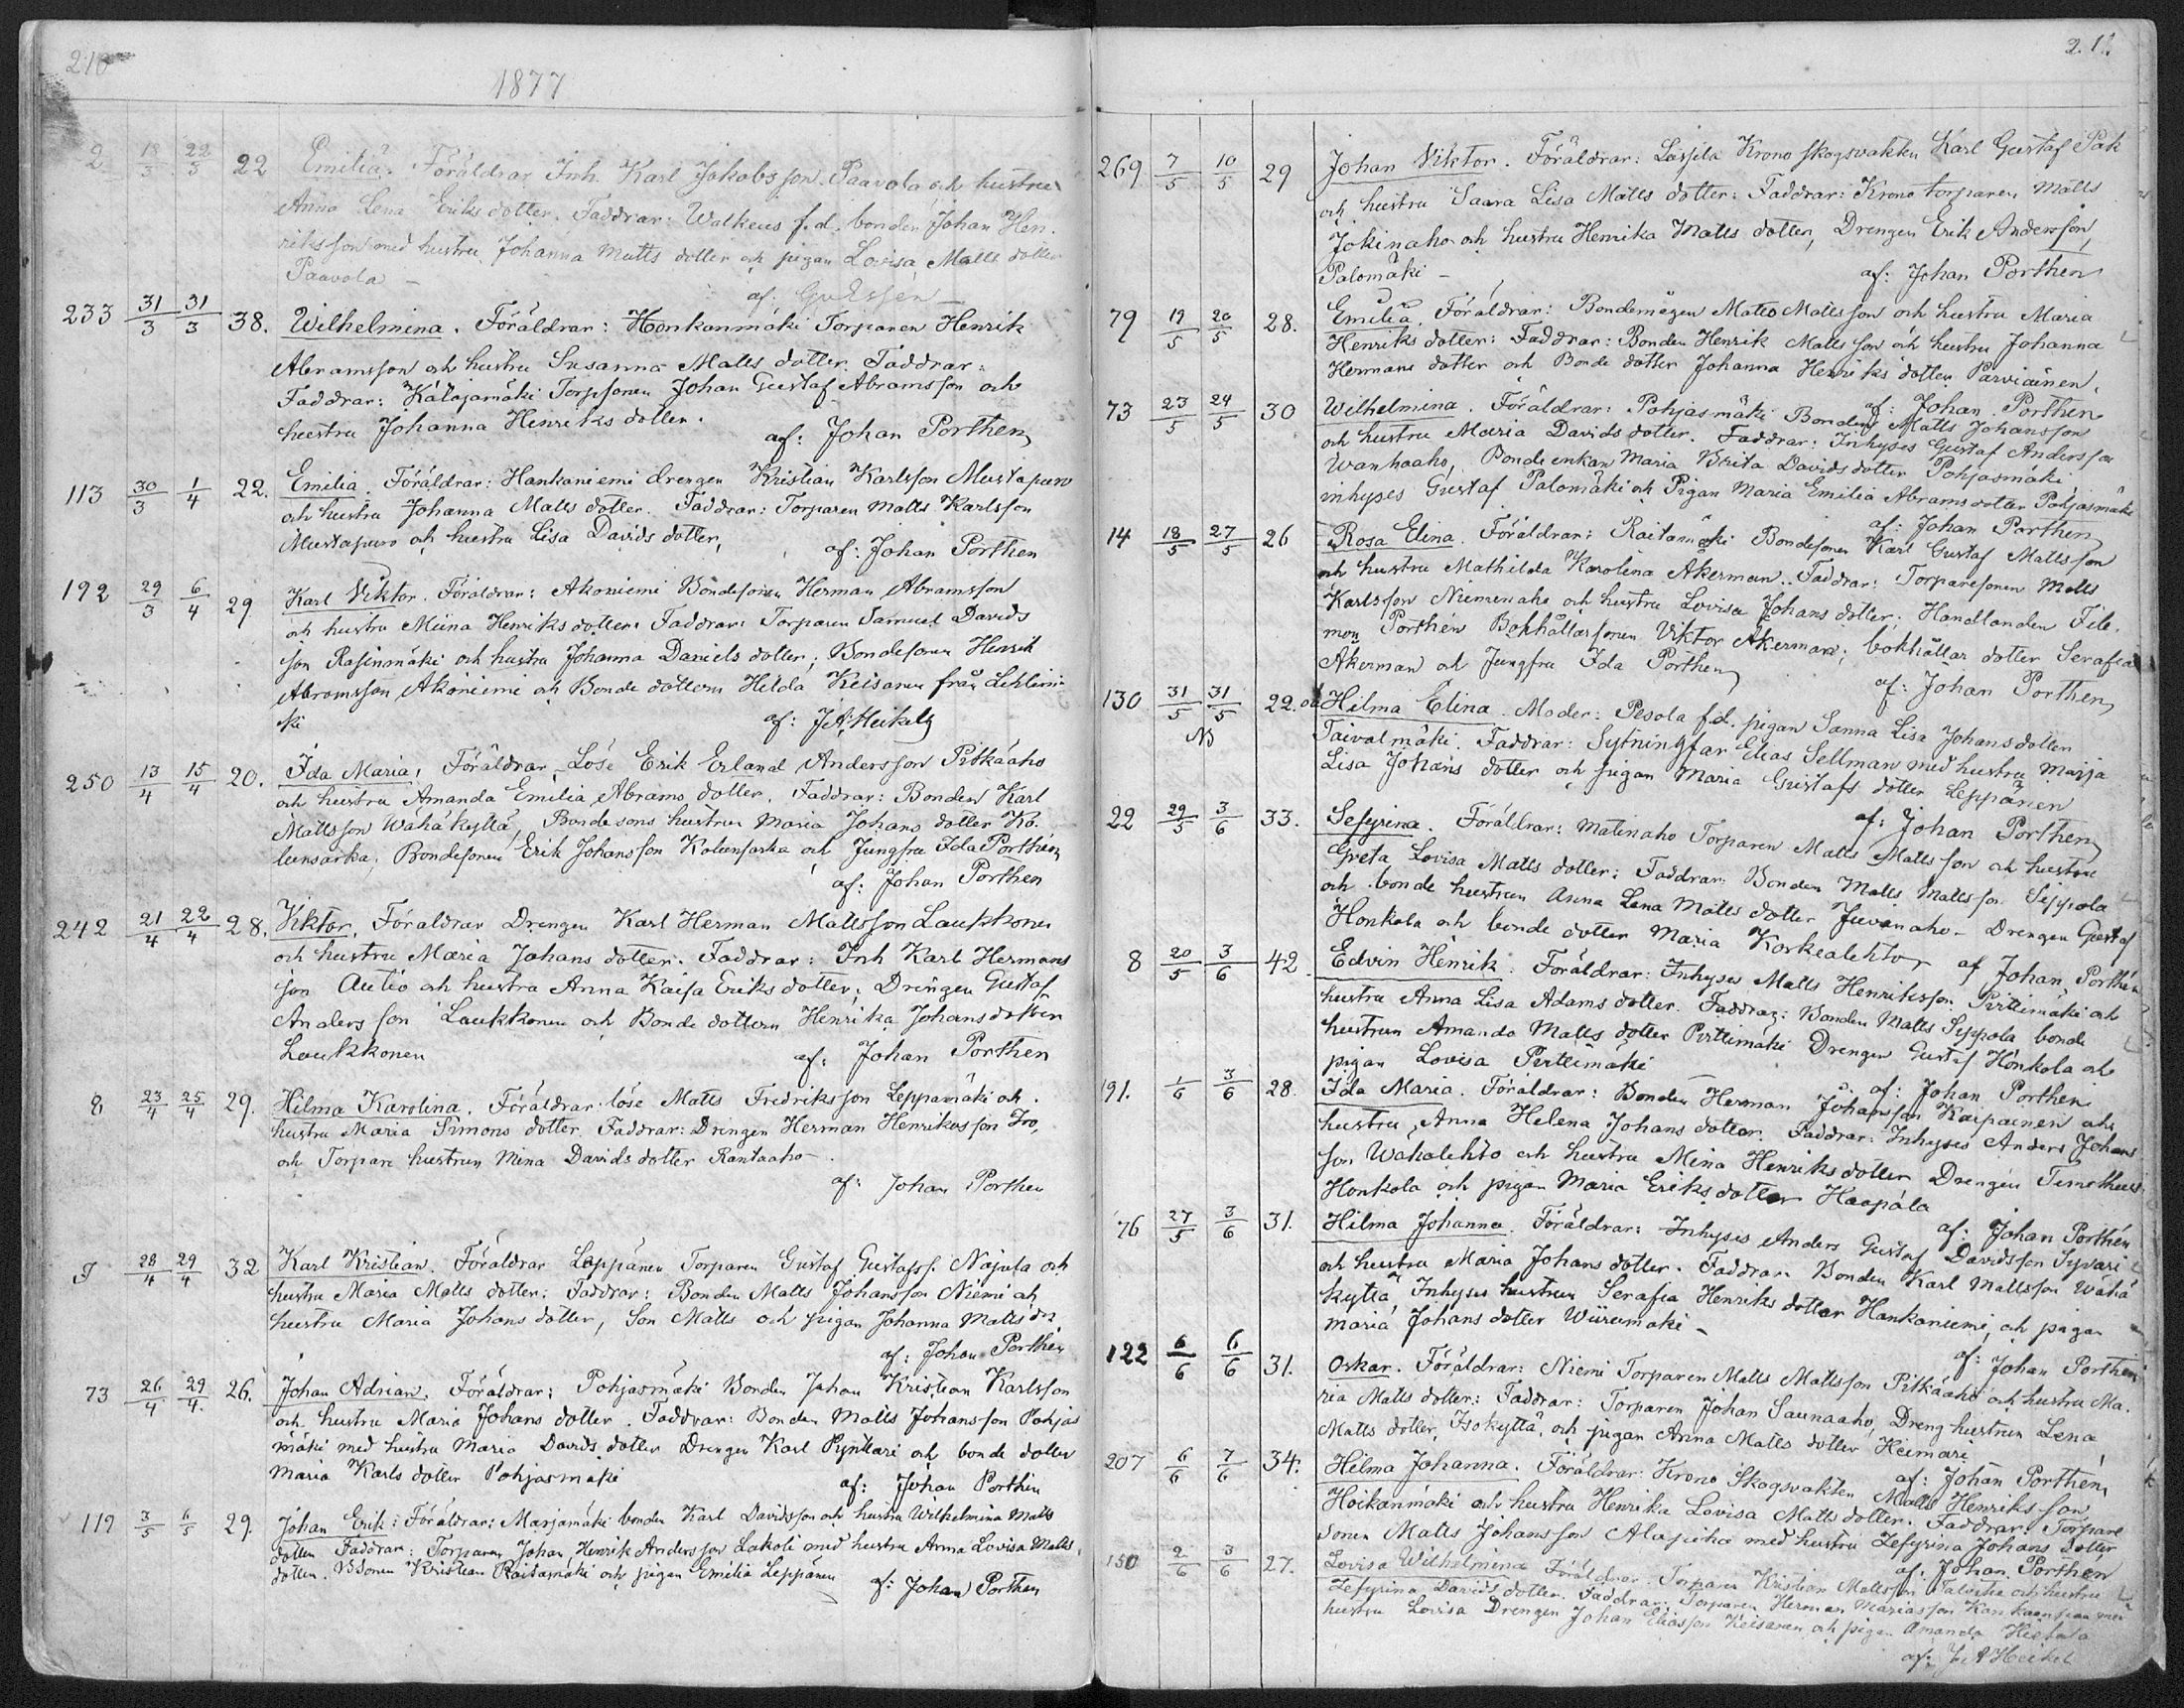 210
1877
2 18/3 22/3 22 Emilia. Föräldrar Inh. Karl Jakobsson Paavola och hustru
Anna Lena Eriks dotter. Faddrar: Walkeus f.d. bonden Johan Hen.
riksson med hustru Johanna Matts dotter och pigan Lovisa Matts dotter
Paavola –
af:
233 31/3 31/3 38. Wilhelmina. Föräldrar: Honkanmäki Torparen Henrik
Abramsson och hustru Susanna Matts dotter. Faddrar:
Faddrar: Katajamäki Torpsonen Johan Gustaf Abramsson och
hustru Johanna Henriks dotter.
af: Johan Porthen
113 30/3 1/4 22. Emilia. Föräldrar: Hankaniemi drengen Kristian Karlsson Mustapuro
och hustru Johanna Matts dotter. Faddrar: Torparen Matts Karlsson
Mustapuro och hustru Lisa Davids dotter,
af: Johan Porthen
192 29/3 6/4 29 Karl Viktor. Föräldrar: Akoniemi Bondesonen Herman Abramsson
och hustru Miina Henriks dotter. Faddrar: Torparen Samuel Davids
son Rasinmäki och hustru Johanna Daniels dotter; Bondesonen Henrik
Abramsson Akoniemi och Bonde dottern Hilda Keisanen från Lehtimä
ki
af: J A Heikel
250 13/4 15/4 20. Ida Maria, Föräldrar, Löse Erik Erland Andersson Pitkäaho
och hustru Amanda Emilia Abrams dotter. Faddrar: Bonden Karl
Mattsson Wähäkyttä, Bondesons hustrun Maria Johans dotter Ko.
lunsarka, Bondesonen Erik Johansson Kolunsarka och Jungfru Ida Porthén
af: Johan Porthen
242 21/4 22/4 28. Viktor, Föräldrar Drengen Karl Herman Mattsson Laukkonen
och hustru Maria Johans dotter. Faddrar: Inh Karl Hermans
son Autio och hustru Anna Kaisa Eriks dotter; Drengen Gustaf
Andersson Laukkonen och Bonde dottern Henrika Johans dotter
Laukkonen
af: Johan Porthen
8 23/4 25/4 29. Hilma Karolina. Föräldrar löse Matts Fredriksson Leppämäki och
hustru Maria Simons dotter Faddrar: Drengen Herman Henriksson Iro,
och Torpare hustrun Mina Davids dotter Rantaaho –
af: Johan Porthen
28/4 29/4 32 Karl Kristian. Föräldrar Leppänen Torparen Gustaf Gustafss. och
hustru Maria Matts dotter; Faddrar: Bonden Matts Johansson Niemi och
hustru Maria Johans dotter, Son Matts och pigan Johanna Matts dr.
af: Johan Porthen
73 26/4 29/4. 26. Johan Adrian. Föräldrar: Pohjasmäki Bonden Johan Kristian Karlsson
och hustru Maria Johans dotter. Faddrar: Bonden Matts Johansson Pohjas
mäki med hustru Maria Davids dotter Drengen Karl Pynttari och bonde dotter
Maria Karls dotter Pohjasmäki
af: Johan Porthen
119 3/5 6/5 29. Johan Erik: Föräldrar: Marjamäki bonden Karl Davidsson och hustru Wilhelmina Matts
dotter Faddrar: Torparen Johan Henrik Andersson Lakoli med hustru Anna Lovisa Matts
dotter. Bdsonen Kristian Raitamäki och pigan Emilia Leppänen
af: Johan Porthen
269 7/5 10/5 29 Johan Viktor. Föräldrar: Lassila Krono skogsvakten Karl Gustaf Pak
och hustru Saara Lisa Matts dotter: Faddrar: Krono torparen Matts
Jokinaho och hustru Henrika Matts dotter, Drengen Erik Andersson,
Palomäki –
af: Johan Porthen
79 19/5 20/5 28. Emilia. Föräldrar: Bondemågen Matts Mattsson och hustru Maria
Henriks dotter: Faddrar: Bonden Henrik Mattsson och hustru Johanna
Hermans dotter och Bonde dotter Johanna Henriks dotter Parviainen.
af: Johan Porthen
73 23/5 24/5 30 Wilhelmina. Föräldrar: Pohjasmäki Bonden Matts Johansson
och hustru Maria Davids dotter. Faddrar: Inhyses Gustaf Andersson
Wanhaaho, Bonde enkan Maria Brita Davids dotter Pohjasmäki
inhyses Gustaf Palomäki och Pigan Maria Emilia Abrams dotter Pohjasmäki
af: Johan Porthen
14 18/5 27/5 26 Rosa Elina. Föräldrar: Raitamäki Bondesonen Karl Gustaf Mattsson
och hustru Mathilda Karolina Åkerman. Faddrar: Torparesonen Matts
Karlsson Niemenaho och hustru Lovisa Johans dotter; Handlanden File.
mon Porthén Bokhållarsonen Viktor Åkerman; bokhållar dotter Serafia
Åkerman och Jungfru Ida Porthen
af: Johan Porthen
130 31/5 31/5 22. oä Hilma Elina. Moder: Pesola f.d. pigan Sanna Lisa Johans dotter
NB Taivalmäki. Faddrar: Sytningsfar Elias Sellman med hustru Maija
Lisa Johans dotter och pigan Maria Gustafs dotter Leppänen
af: Johan Porthen
22 29/5 3/6 33. Sefyrina. Föräldrar: Matinaho Torparen Matts Mattsson och hustru
Greta Lovisa Matts dotter: Faddrar: Bonden Matts Mattsson Seppola
och bonde hustrun Anna Lena Matts dotter Juvanaho – Drengen Gustaf
Honkola och bonde dotter Maria Korkealehto
af Johan Porthén
8 20/5 3/6 42. Edvin Henrik. Föräldrar: Inhyses Matts Henriksson Pirttimäki och
hustru Anna Lisa Adams dotter. Faddrar: Bonden Matts Seppola bonde
hustrun Amanda Matts dotter Pirttimäki Drengen Gustaf Honkola och
pigan Lovisa Pirttimäki
af: Johan Porthen
191. 1/6 3/6 28. Ida Maria. Föräldrar: Bonden Herman Johansson Karpainen och
hustru, Anna Helena Johans dotter. Faddrar: Inhyses Anders Johans
son Wahalehto och hustru Mina Henriks dotter Drengen Timotheus
Honkola och pigan Maria Eriks dotter Haapala
af: Johan Porthén
76 27/5 3/6 31. Hilma Johanna. Föräldrar: Inhyses Anders Gustaf Davidsson Syväri
och hustru Maria Johans dotter. Faddrar. Bonden Karl Mattsson Wähä
kyttä, Inhyses hustrun Serafia Henriks dotter Hankaniemi, och pigan
Maria Johans dotter Wiirumäki –
af: Johan Porthen
122 6/6 6/6 31. Oskar. Föräldrar: Niemi Torparen Matts Mattsson Pitkäaho och hustru Ma.
ria Matts dotter: Faddrar: Torparen Johan Saunaaho, Dreng hustrun Lena
Matts dotter, Isokyttä, och pigan Anna Matts dotter Heimari
af: Johan Porthén
207 6/6 7/6 34. Hilma Johanna. Föräldrar: Krono Skogsvakten Matts Henriksson
Hoikanmäki och hustru Henrika Lovisa Matts dotter. Faddrar: Torpare
sonen Matts Johansson Alapiha med hustru Zefyrina Johans dotter
af: Johan Porthen
150 2/6 3/6 27. Lovisa Wilhelmina Föräldrar Torparen Kristian Mattsson och hustru
Zefyrina Davids dotter. Faddrar: Torparen Herman med
hustru Lovisa Drengen Johan Eliasson Keisanen och pigan Amanda Hietala
af: J A Heikel